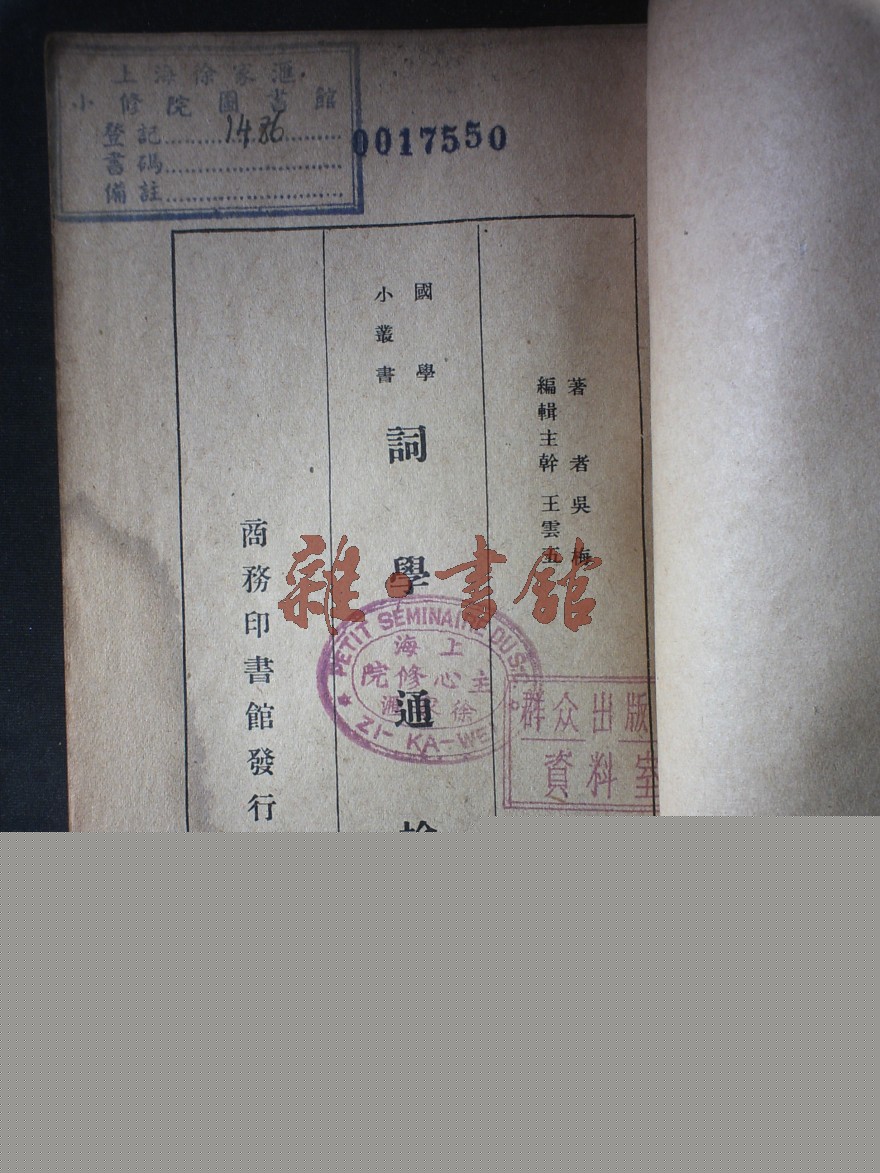 上海徐家滙
小修院圖書館
登記 1486
書碼
備註
0017550
著者 吳梅
編輯主幹 王雲五
國學
小叢書
詞學通
商務印書館發行
雜·書館
PETIT SÉMINAIRE DU
上海
主心修院
徐家滙
ZI-KA-WE
群众出版
資料室